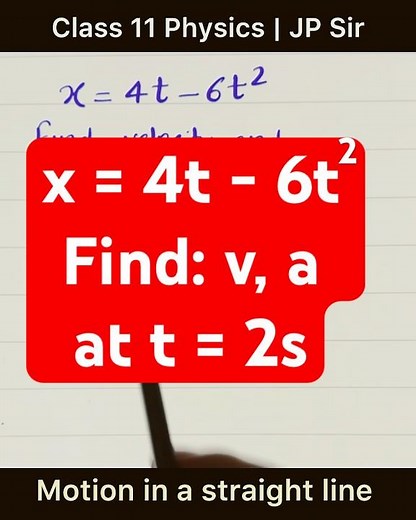 Class 11 Physics | JP Sir
x = 4t – 6t²
x = 4t - 6t²
Find: v, a
at t = 2s
Motion in a straight line